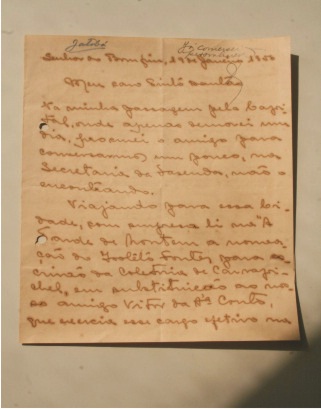 Jatobá
Senhor do Bomfim, 19 de Janeiro 1953
Meu caro Sinhô
Na minha passagem pela Capi-
tal, onde apenas demorei um
dia, procurei o amigo para
conversarmos um pouco, na
Secretaria da Fazenda, não o
encontrando.
Viajando para essa ci-
dade, com surpresa li na "A
Tarde" de hontem a nomea-
ção de Isolito Fontes para es-
crivão da Coletoria de
em substituição ao nos-
so amigo Vitor da Couto,
que exercia esse cargo efetivo na